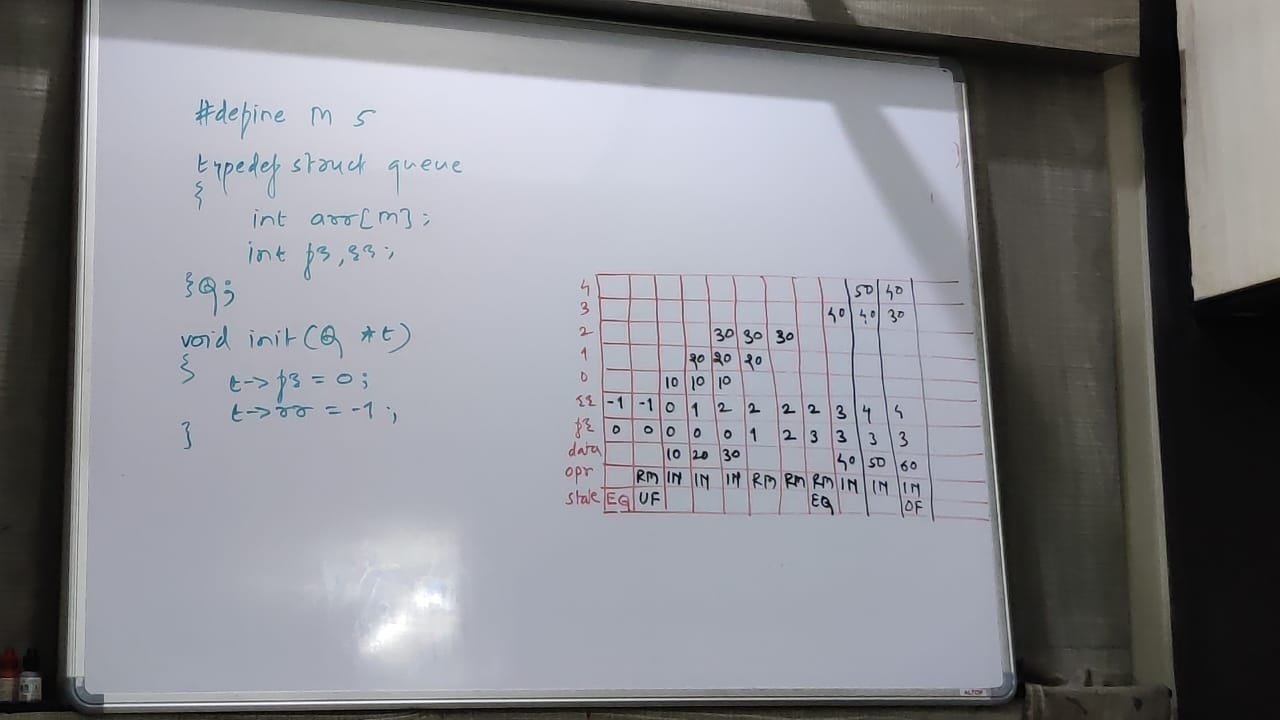 #define m 5
typedef struct queue
{
int arr[m];
int fr, rr;
}Q;
void init(Q *t)
{
t->fr = 0;
t->rr = -1;
}
4 50 40
3 40 40 30
2 30 30 30
1 20 20 20
0 10 10 10
rr -1 -1 0 1 2 2 2 2 3 4 4
fr 0 0 0 0 0 1 2 3 3 3 3
data 10 20 30 40 50 60
opr RM IN IN IN RM RM RM IN IN IN
state EQ UF EQ OF
ALTOP